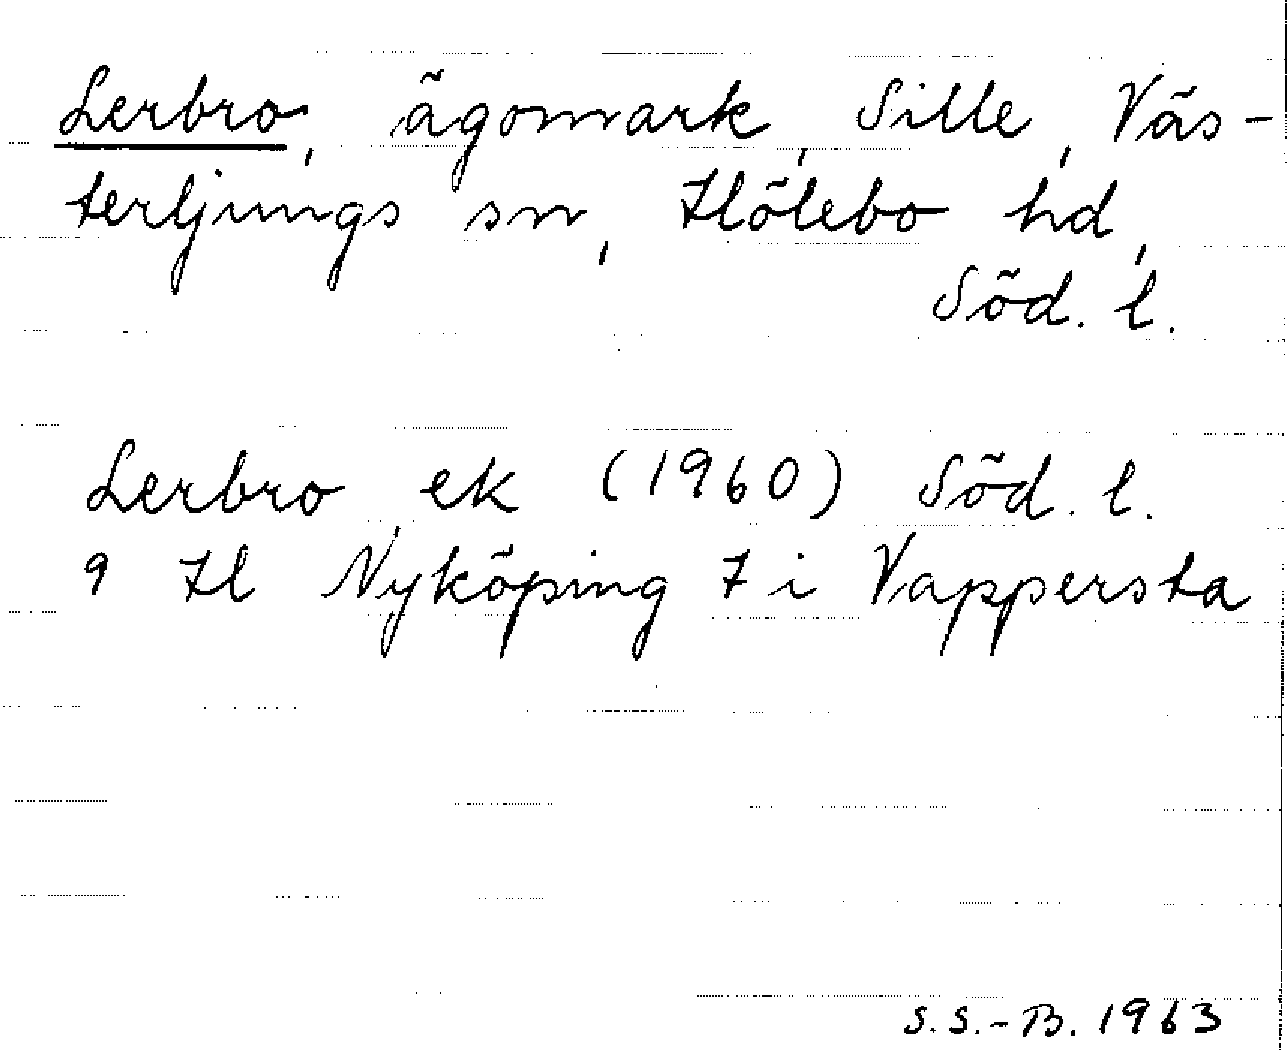 Lerbro, ägomark, Sille, Väs-
terljungs sn, Hölebo hd,
Söd. l.
Lerbro, ek (1960) Söd. l.
9 H l Nyköping 7 i Vappersta
S.S.-B. 1963